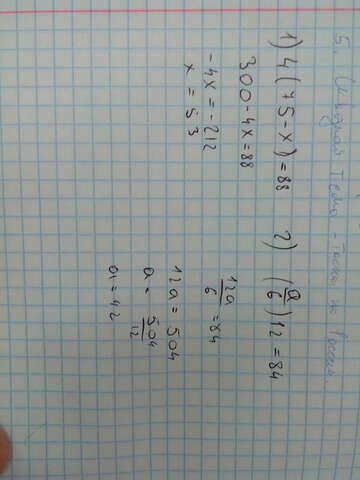 5.
1) 4(75-x)=88
300-4x=88
-4x=-212
x=53
2) (a/6)12=84
12a/6=84
12a=504
a=504/12
a=42